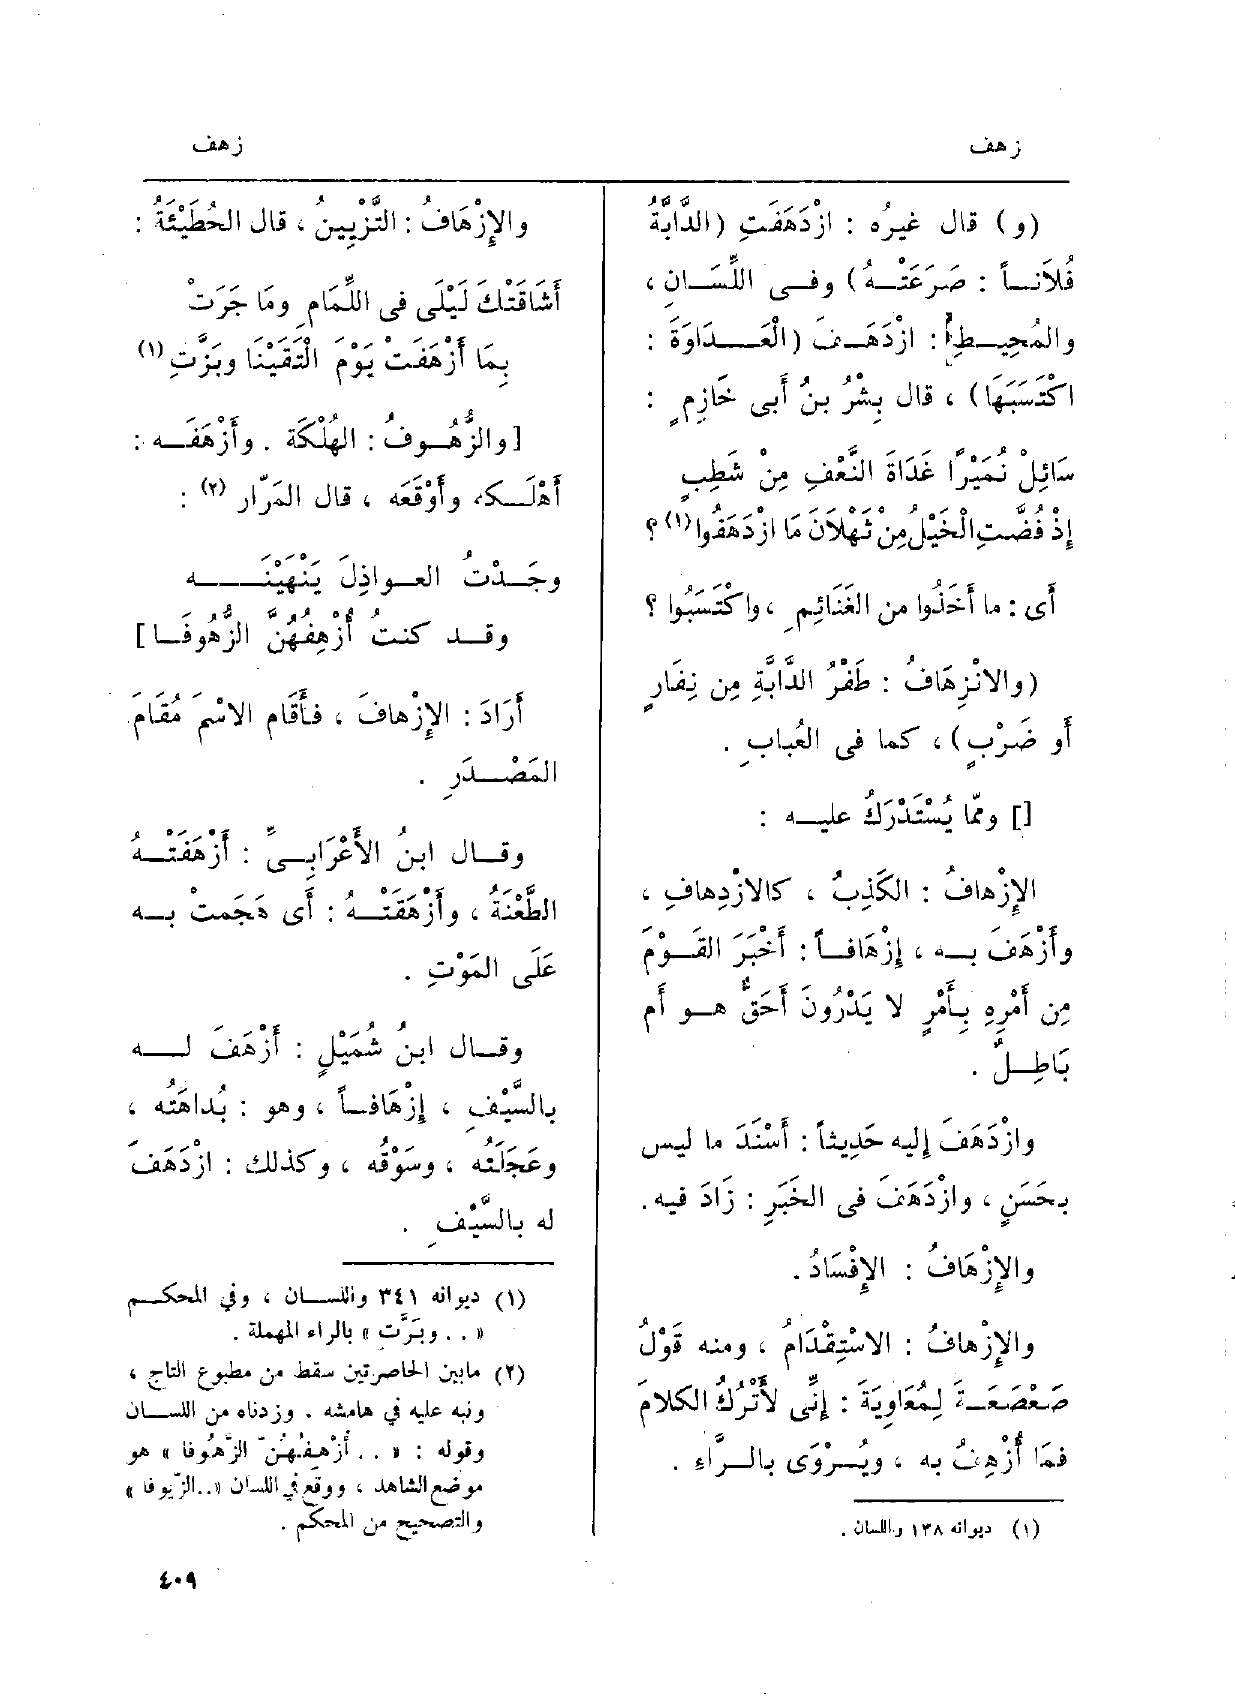 زهف
زهف
(و) قال غيرُه : ازْدَهَفَتِ (الدَّابَّةُ
فُلَاناً : صَرَعَتْهُ) وفى اللِّسَانِ ،
والمُحِيطِ : ازْدَهَفَ (الْعَدَاوَةَ :
اكْتَسَبَهَا) ، قال بِشْرُ بنُ أَبى خَازِمٍ :
سَائِلْ نُمَيْرًا غَدَاةَ النَّعْفِ مِنْ شَطِبٍ
إِذْ فُضَّتِ الْخَيْلُ مِنْ ثَهْلَانَ مَا ازْدَهَفُوا(١)؟
أى : ما أَخَذُوا من الغَنَائِمِ ، واكْتَسَبُوا ؟
(والانْزِهَافُ : طَفْرُ الدَّابَّةِ مِن نِفَارٍ
أَو ضَرْبٍ) ، كما فى العُبابِ .
[] وممّا يُسْتَدْرَكُ عليه :
الإِزْهافُ : الكَذِبُ ، كالازْدِهافِ ،
وأَزْهَفَ به ، إِزْهَافاً : أَخْبَرَ القَوْمَ
مِن أَمْرِهِ بِأَمْرٍ لا يَدْرُونَ أَحَقٌّ هو أَم
بَاطِلٌ .
وازْدَهَفَ إِليه حَدِيثاً : أَسْنَدَ ما ليس
بحَسَنٍ ، وازْدَهَفَ فى الخَبَرِ : زَادَ فيه .
والإِزْهَافُ : الإِفْسَادُ .
والإِزْهافُ : الاسْتِقْدَامُ ، ومنه قَوْلُ
صَعْصَعَةَ لِمُعَاوِيَةَ : إِنِّى لَأَتْرُكُ الكلامَ
فمَا أُزْهِفُ به ، ويُرْوَى بالرَّاءِ .
(١) ديوانه ١٣٨ واللسان .
والإِزْهَافُ : التَّزْيِينُ ، قال الحُطَيْئَةُ :
أَشَاقَتْكَ لَيْلَى فى اللِّمَامِ وما جَرَتْ
بِمَا أَزْهَفَتْ يَوْمَ الْتَقَيْنَا وبَزَّتِ(١)
[والزُّهُوفُ : الهُلْكَة . وأَزْهَفَه :
أَهْلَكه وأَوْقَعَه ، قال المَرّار (٢) :
وجَدْتُ العواذِلَ يَنْهَيْنَه
وقد كنتُ أُزْهِفُهُنَّ الزُّهُوفَا]
أَرَادَ : الإِزْهافَ ، فأَقَام الاسْمَ مُقَامَ
المَصْدَرِ .
وقال ابنُ الأَعْرَابِىِّ : أَزْهَفَتْهُ
الطَّعْنَةُ ، وأَزْهَقَتْهُ : أَى هَجَمتْ به
عَلَى المَوْتِ .
وقال ابنُ شُمَيْلٍ : أَزْهَفَ له
بالسَّيْفِ ، إِزْهَافاً ، وهو : بُداهَتُه ،
وعَجَلَتُه ، وسَوْقُه ، وكذلك : ازْدَهَفَ
له بالسَّيْفِ .
(١) ديوانه ٣٤١ واللسان ، وفي المحكم
« . . وبَرَّت » بالراء المهملة .
(٢) مابين الحاصرتين سقط من مطبوع التاج ،
ونبه عليه في هامشه . وزدناه من اللسان
وقوله : « . . أُزْهِفُهُنّ الزُّهُوفا » هو
موضع الشاهد ، ووقع في اللسان «..الزُّيوفا »
والتصحيح من المحكم .
٤٠٩